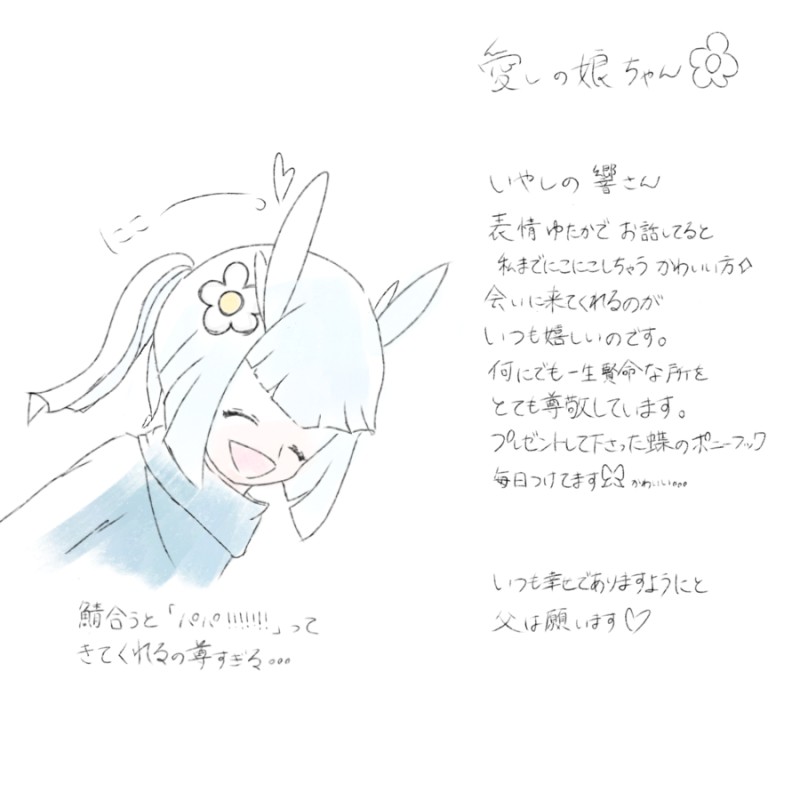 愛しの娘ちゃん
いやしの響さん
表情ゆたかでお話してると
私までにこにこしちゃうかわいい方
会いに来てくれるのが
いつも嬉しいのです。
何にでも一生賢命な所を
とても尊敬しています。
プレゼントして下さった蝶のポニーフック
毎日つけてます かわいい...
いつも幸せでありますようにと
父は願います♡
鯖合うと「パパ!!!!!!!」って
きてくれるの尊すぎる...